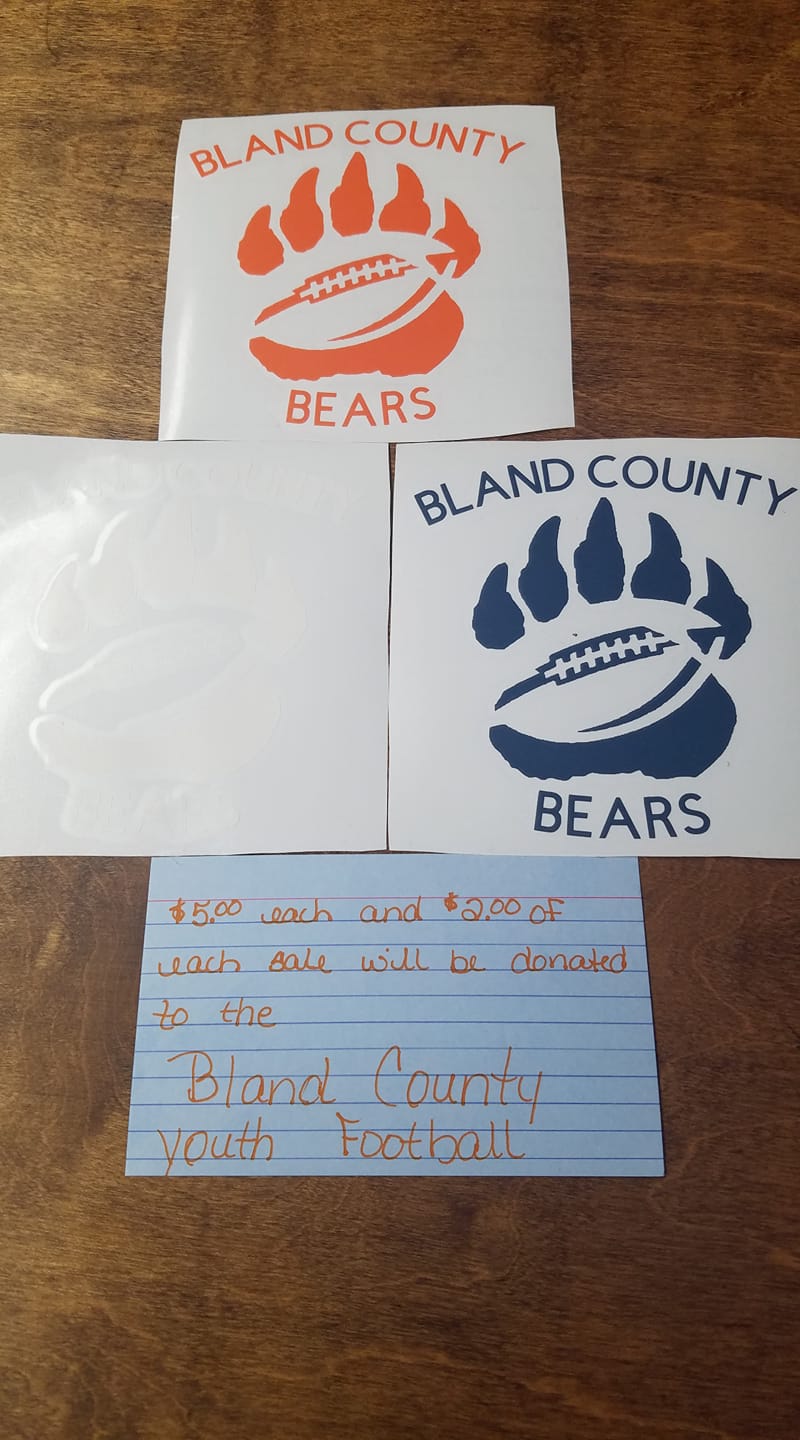 BLAND COUNTY
BEARS
BLAND COUNTY
BEARS
BLAND COUNTY
BEARS
$5.00 each and $2.00 of
each sale will be donated
to the
Bland County
youth Football